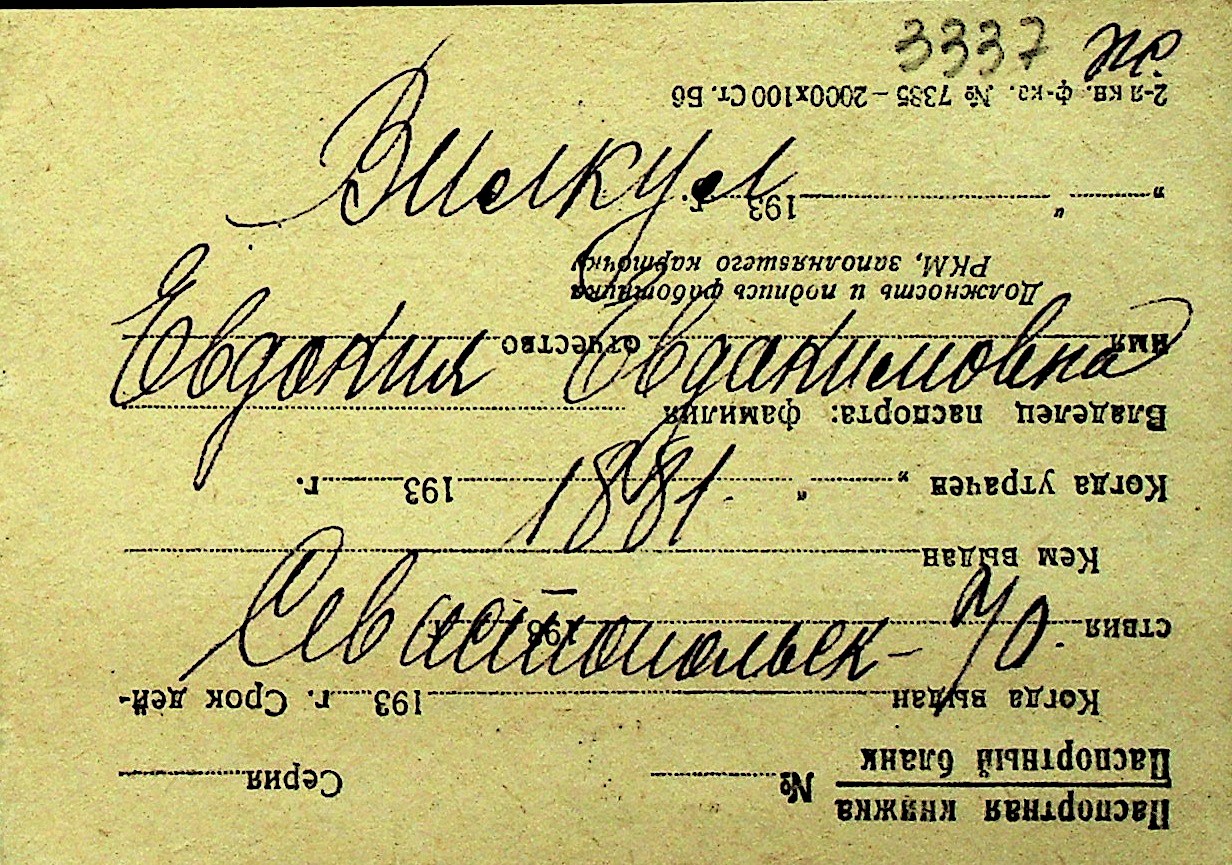 3337
Вилкул
Евдокия Евдакимовна
1881.
Севастопольск-70.
Паспортная книжка
Паспортный бланк № Серия
Когда выдан 193 г. Срок дей-
ствия 193
Кем выдан
Когда утрачен „ " 193 г.
Владелец паспорта: фамилия
имя отчество
Должность и подпись работника
РКМ, заполнявшего карточку
„ " 193 г.
2-я кв. ф-ка. № 7385 – 2000х100 Ст. Б6